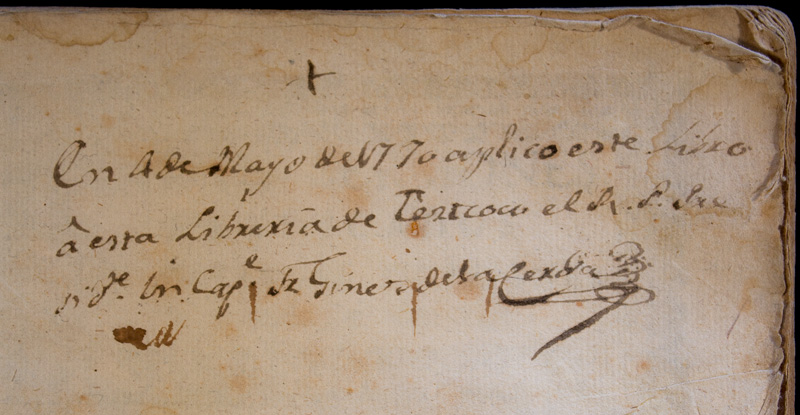 En 4 de Mayo de 1770 aplico este Libro
â esta Libreria de Testcoco el R. P. Pre
sid.e in Cap.e Fr Gines de la Cerda